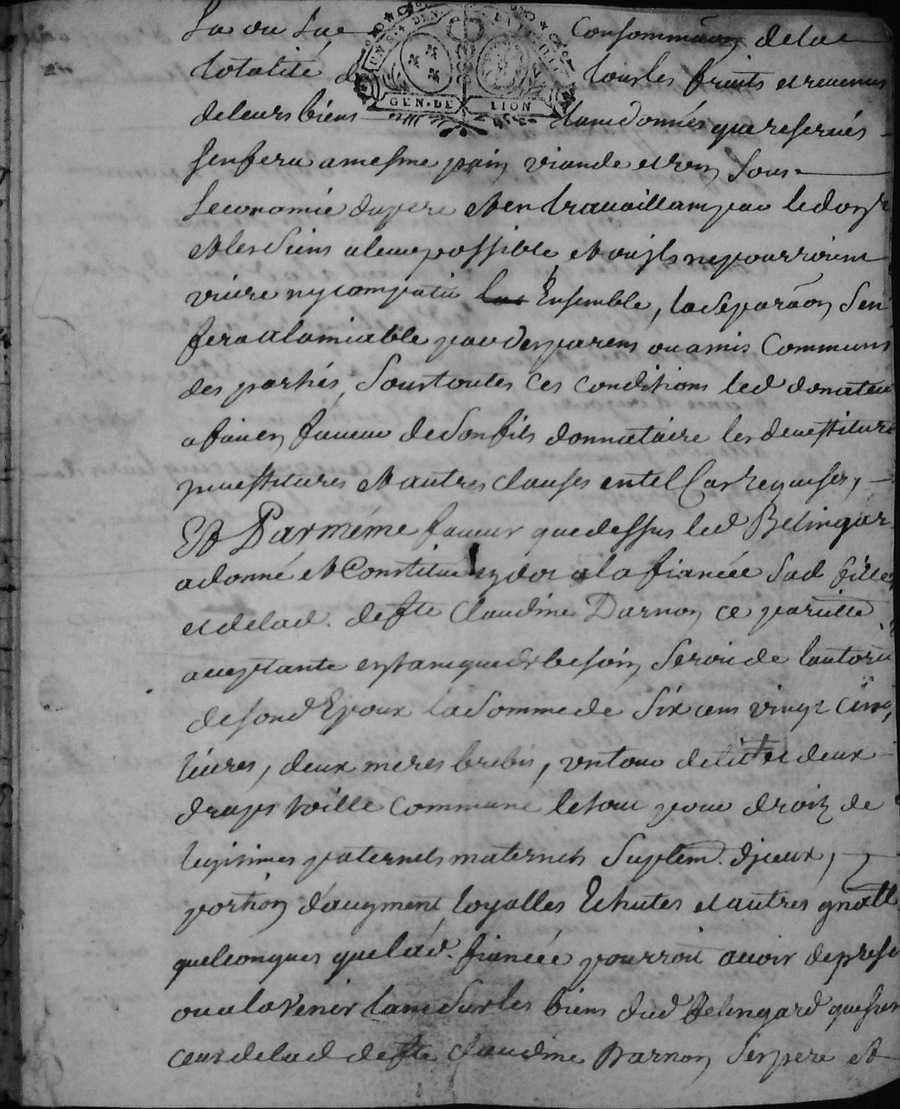 Sa ou Sae Consommāon de lae
totalité d tous les fruits et revenus
GEN. DE LION
de leurs biens tant donnés que reservés
Sen fera a mesme pain viande et Sous
Leconomie du pere et en travaillant par led
et les Siens a leur possible et ou ils ne pourroient
vivre ny compatir Ensemble, la Separāon Sen
fera a lamiable par des parens ou amis Communs
des parties, Sous toutes ces conditions led donateur
a fait en faveur de Son fils donnataire les devestitures
investitures et autres clauses en tel Cas requises,
Et Par méme faveur que dessus led Belingar
a donné et Constitué en dot a la fiancée Sad fille
et de lad. defte Claudine Darnon ce
acceptante en tant que de besoin Seroit de lautorité
de Sond Epoux la Somme de Six cens vingt cinq
livres, deux meres brebis, un tour de lit et deux
draps toille commune le tout pour droit de
legitimes paternels maternels Suplem. djceux,
portion daugment, loyalles Echutes et autres gnāll
quelconques que lad. fiancée pourroit avoir de prese
ou a lavenir tant Sur les biens dud Belingard que Sur
ceux de lad defte Claudine Darnon Ses pere et